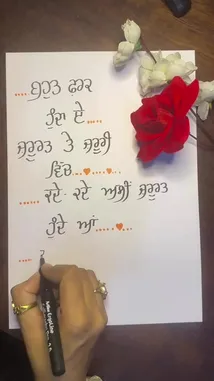 .... ਬਹੁਤ ਫ਼ਰਕ
ਹੁੰਦਾ ਏ .....
ਜ਼ਰੂਰਤ ਤੇ ਜ਼ਰੂਰੀ
ਵਿੱਚ...♥....♥...
..... ਕਦੇ-ਕਦੇ ਅਸੀਂ ਜ਼ਰੂਰਤ
ਹੁੰਦੇ ਆਂ.....♥...
....